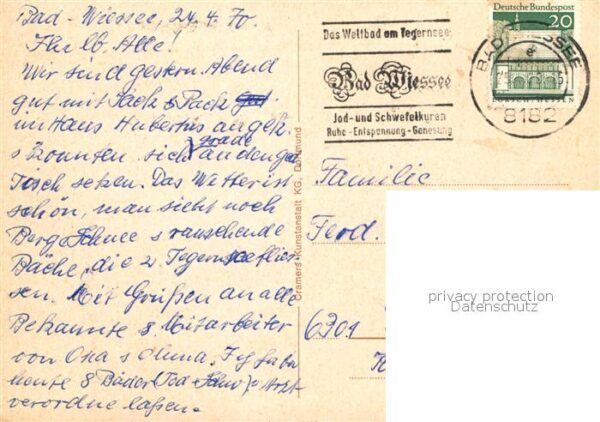 Bad-Wiessee, 24.4.70.
Ihr lb. Alle!
Wir sind gestern Abend
gut mit Sack & Pack gut
im Haus Hubertus angek.
s konnten sich grade an den ged
Tisch setzen. Das Wetter ist
schön, man sieht noch
Berge Schnee s rauschende
Bäche, die z. Tegernsee flies-
sen. Mit Grüßen an alle
Bekannte s Mitarbeiter
von Opa s Oma. Ich habe
heute 8 Bäder (Jod + Schw) v Arzt
verordne laßen.
Das Weltbad am Tegernsee
Bad Wiessee
Jod- und Schwefelkuren
Ruhe - Entspannung - Genesung
Deutsche Bundespost
20
BAD WIESSEE
8182
Cramers Kunstanstalt KG. Dortmund
Familie
Ferd.
6301
privacy protection
Datenschutz